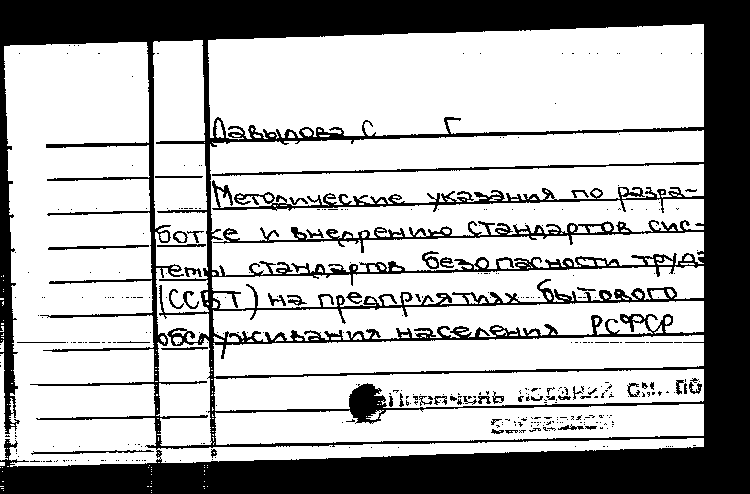 Давыдова, С Г
Методические указания по разра-
ботке и внедрению стандартов сис-
темы стандартов безопасности труда
(ССБТ) на предприятиях бытового
обслуживания населения РСФСР
Перечень изданий см. по
заглавием